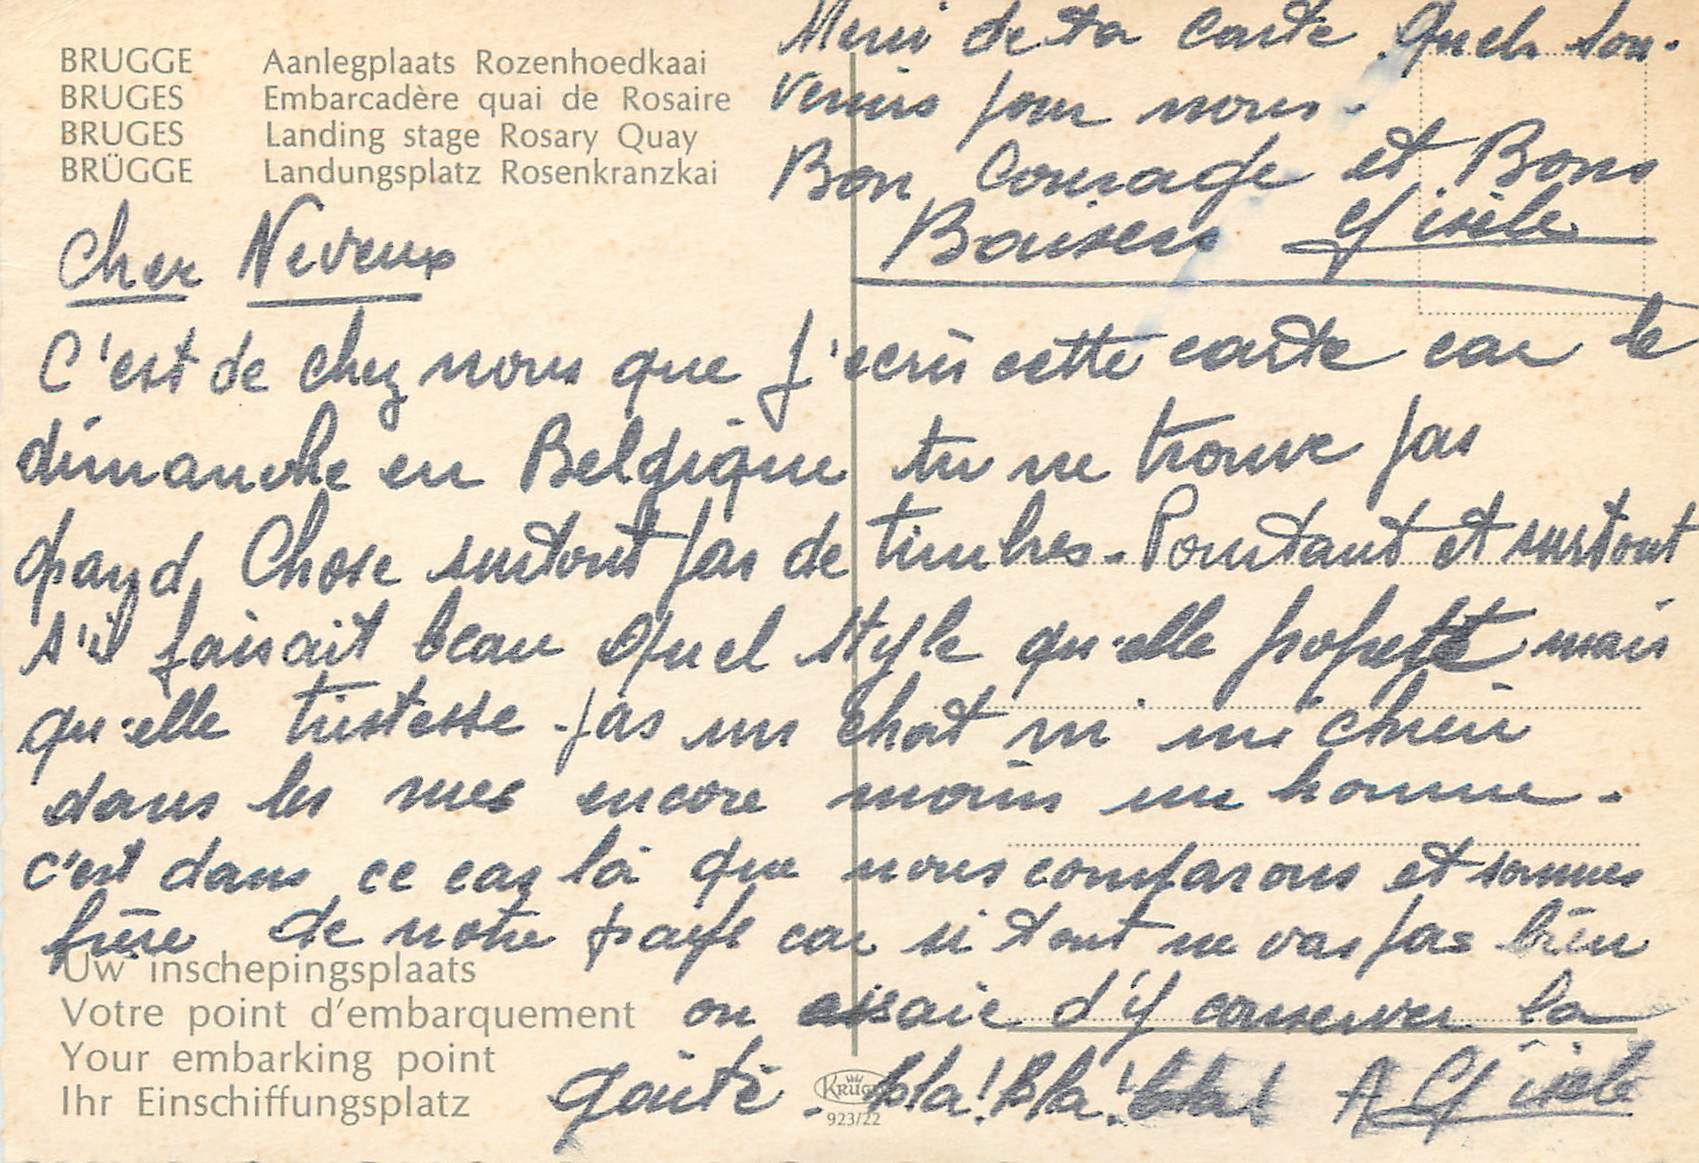 BRUGGE Aanlegplaats Rozenhoedkaai
BRUGES Embarcadère quai de Rosaire
BRUGES Landing stage Rosary Quay
BRÜGGE Landungsplatz Rosenkranzkai
Merci de ta carte. Quels sou-
venirs pour nous.
Bon Courage et Bons
Baisers Gisèle
Cher Neveux
C'est de chez nous que j'ecris cette carte car le
dimanche en Belgique tu ne trouve pas
grand Chose surtout pas de timbres. Pourtant et surtout
s'il faisait beau Quel style qu'elle propreté mais
qu'elle tristesse. pas un chat ni un chien
dans les rues encore moins un homme.
C'est dans ce cas là que nous comparons et sommes
fière de notre pays car si tout ne vas pas bien
on essaie d'y conserver la
gaité. bla! bla! bla! A Gisèle
Uw inschepingsplaats
Votre point d'embarquement
Your embarking point
Ihr Einschiffungsplatz
KRUGER
923/22